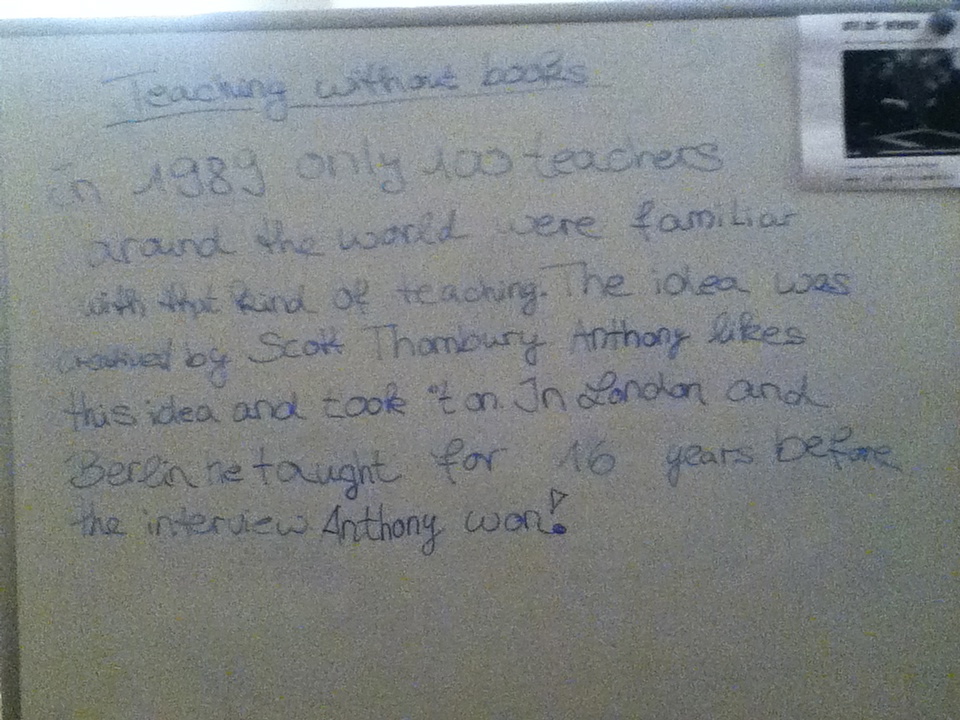 Teaching without books
in 1989 only 100 teachers
around the world were familiar
with that kind of teaching. The idea was
by Scott Thornbury Anthony likes
this idea and took it on. In London and
Berlin he taught for 16 years before
the interview Anthony won!